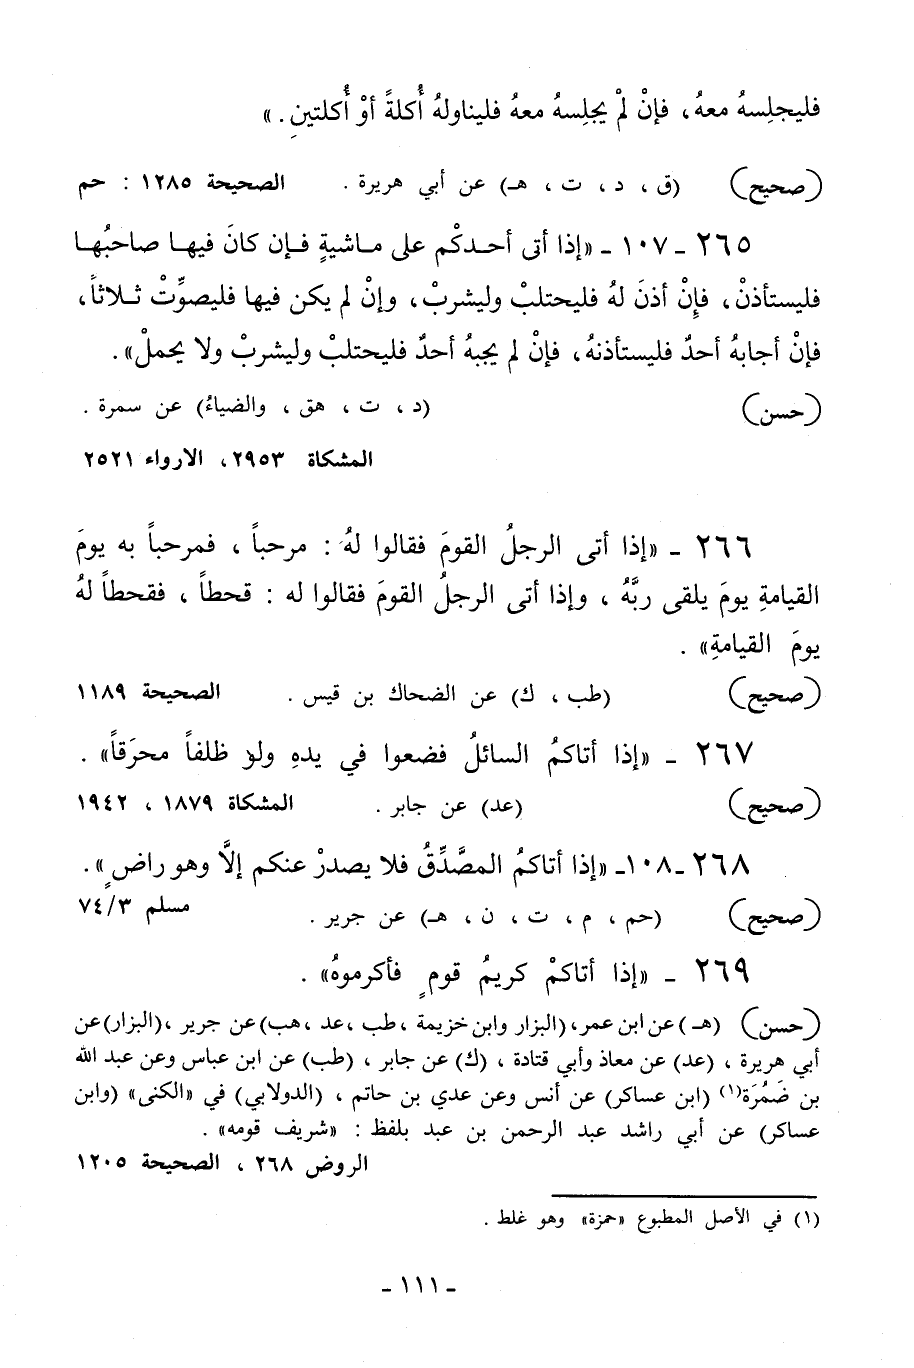 فليجلِسهُ معهُ، فإنْ لمْ يجلِسهُ معهُ فليناولهُ أُكلةً أوْ أُكلتينِ. »
(صحيح) (ق ، د ، ت ، هـ) عن أبي هريرة . الصحيحة ١٢٨٥ : حم
٢٦٥ ـ ١٠٧ ـ «إذا أتى أحدكْم على ماشيةٍ فإن كانَ فيها صاحبُها
فليستأذنْ، فإِنْ أذنَ لهُ فليحتلبْ وليشربْ، وإنْ لم يكن فيها فليصوِّتْ ثلاثاً،
فإنْ أجابهُ أحدٌ فليستأذنهُ، فإنْ لم يجبهُ أحدٌ فليحتلبْ وليشربْ ولا يحملْ».
(حسن) (د ، ت ، هق ، والضياءُ) عن سمرة .
المشكاة ٢٩٥٣، الارواء ٢٥٢١
٢٦٦ ـ «إذا أتى الرجلُ القومَ فقالوا لهُ : مرحباً ، فمرحباً به يومَ
القيامةِ يومَ يلقى ربَّهُ ، وإذا أتى الرجلُ القومَ فقالوا له : قحطاً ، فقحطاً لهُ
يومَ القيامةِ» .
(صحيح) (طب ، ك) عن الضحاك بن قيس . الصحيحة ١١٨٩
٢٦٧ ـ «إذا أتاكمُ السائلُ فضعوا في يدهِ ولوْ ظلفاً محرَقاً» .
(صحيح) (عد) عن جابر . المشكاة ١٨٧٩ ، ١٩٤٢
٢٦٨ ـ١٠٨ـ «إذا أتاكمُ المصَّدِّقُ فلا يصدرْ عنكم إلَّا وهو راضٍ».
(صحيح) (حم ، م ، ت ، ن ، هـ) عن جرير . مسلم ٧٤/٣
٢٦٩ ـ «إذا أتاكمْ كريمُ قومٍ فأكرموهُ» .
(حسن) (هـ) عن ابن عمر، (البزار وابن خزيمة ، طب ، عد ، هب) عن جرير ، (البزار) عن
أبي هريرة ، (عد) عن معاذ وأبي قتادة ، (ك) عن جابر ، (طب) عن ابن عباس وعن عبد الله
بن ضَمُرَة(١) (ابن عساكر) عن أنس وعن عدي بن حاتم ، (الدولابي) في «الكنى» (وابن
عساكر) عن أبي راشد عبد الرحمن بن عبد بلفظ : «شريف قومه» .
الروض ٢٦٨ ، الصحيحة ١٢٠٥
(١) في الأصل المطبوع «حمزة» وهو غلط .
ـ ١١١ ـ